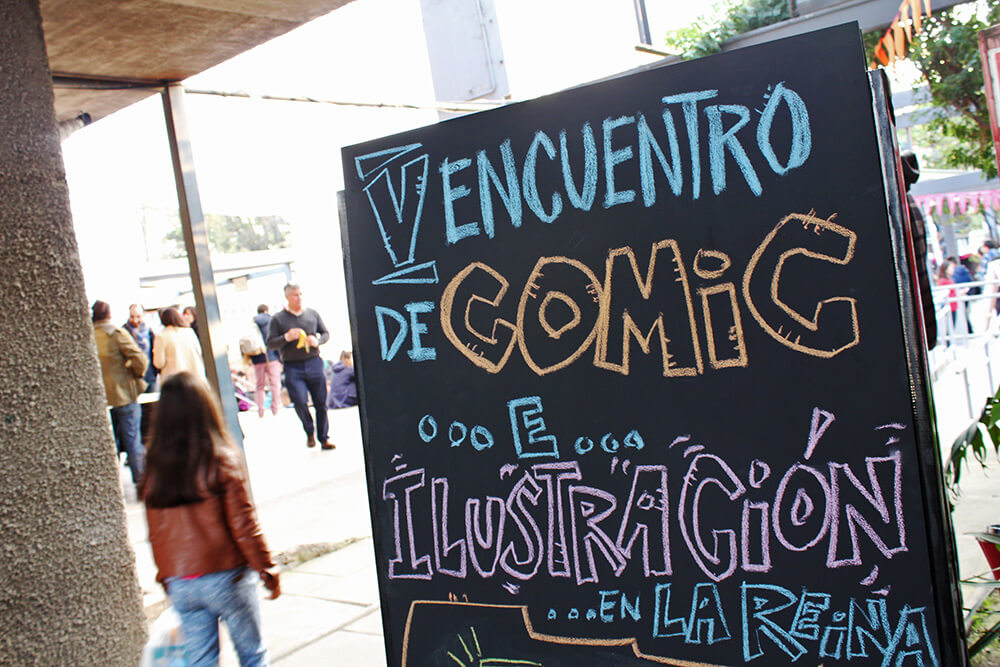 V ENCUENTRO
DE COMiC
...E...
ILUSTRACiÓN
...EN LA REiNA